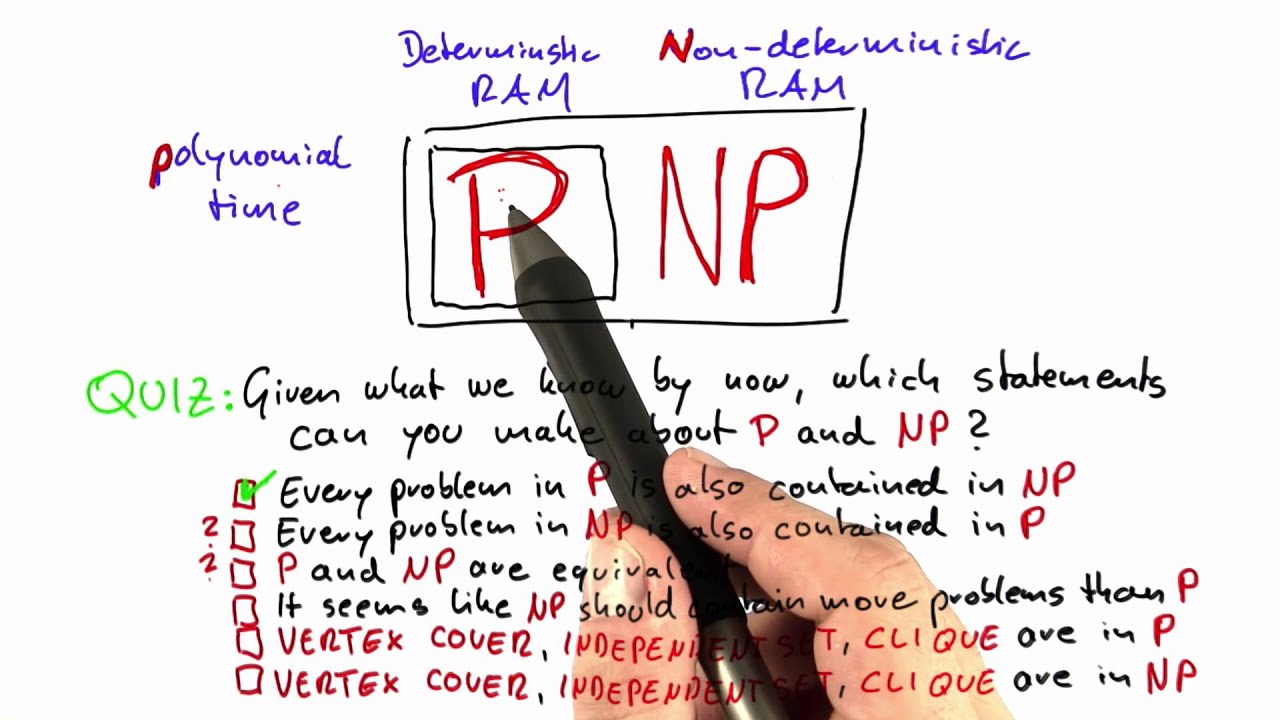 Deterministic Non-deterministic
RAM RAM
Polynomial
time
P NP
QUIZ: Given what we know by now, which statements
can you make about P and NP?
✓ Every problem in P is also contained in NP
? Every problem in NP is also contained in P
? P and NP are equivalent
It seems like NP should contain more problems than P
VERTEX COVER, INDEPENDENT SET, CLIQUE are in P
VERTEX COVER, INDEPENDENT SET, CLIQUE are in NP